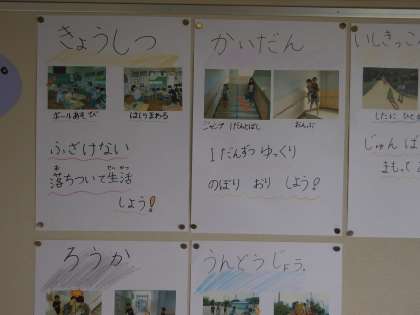 きょうしつ
ボールあそび
はしりまわる
ふざけない
落ちついて生活
しよう!
かいだん
ジャンプ 1だんとばし
おんぶ
1だんずつ ゆっくり
のぼり おり しよう!
いしきっこ
したに ひと
じゅんば
ろうか
うんどうじょう